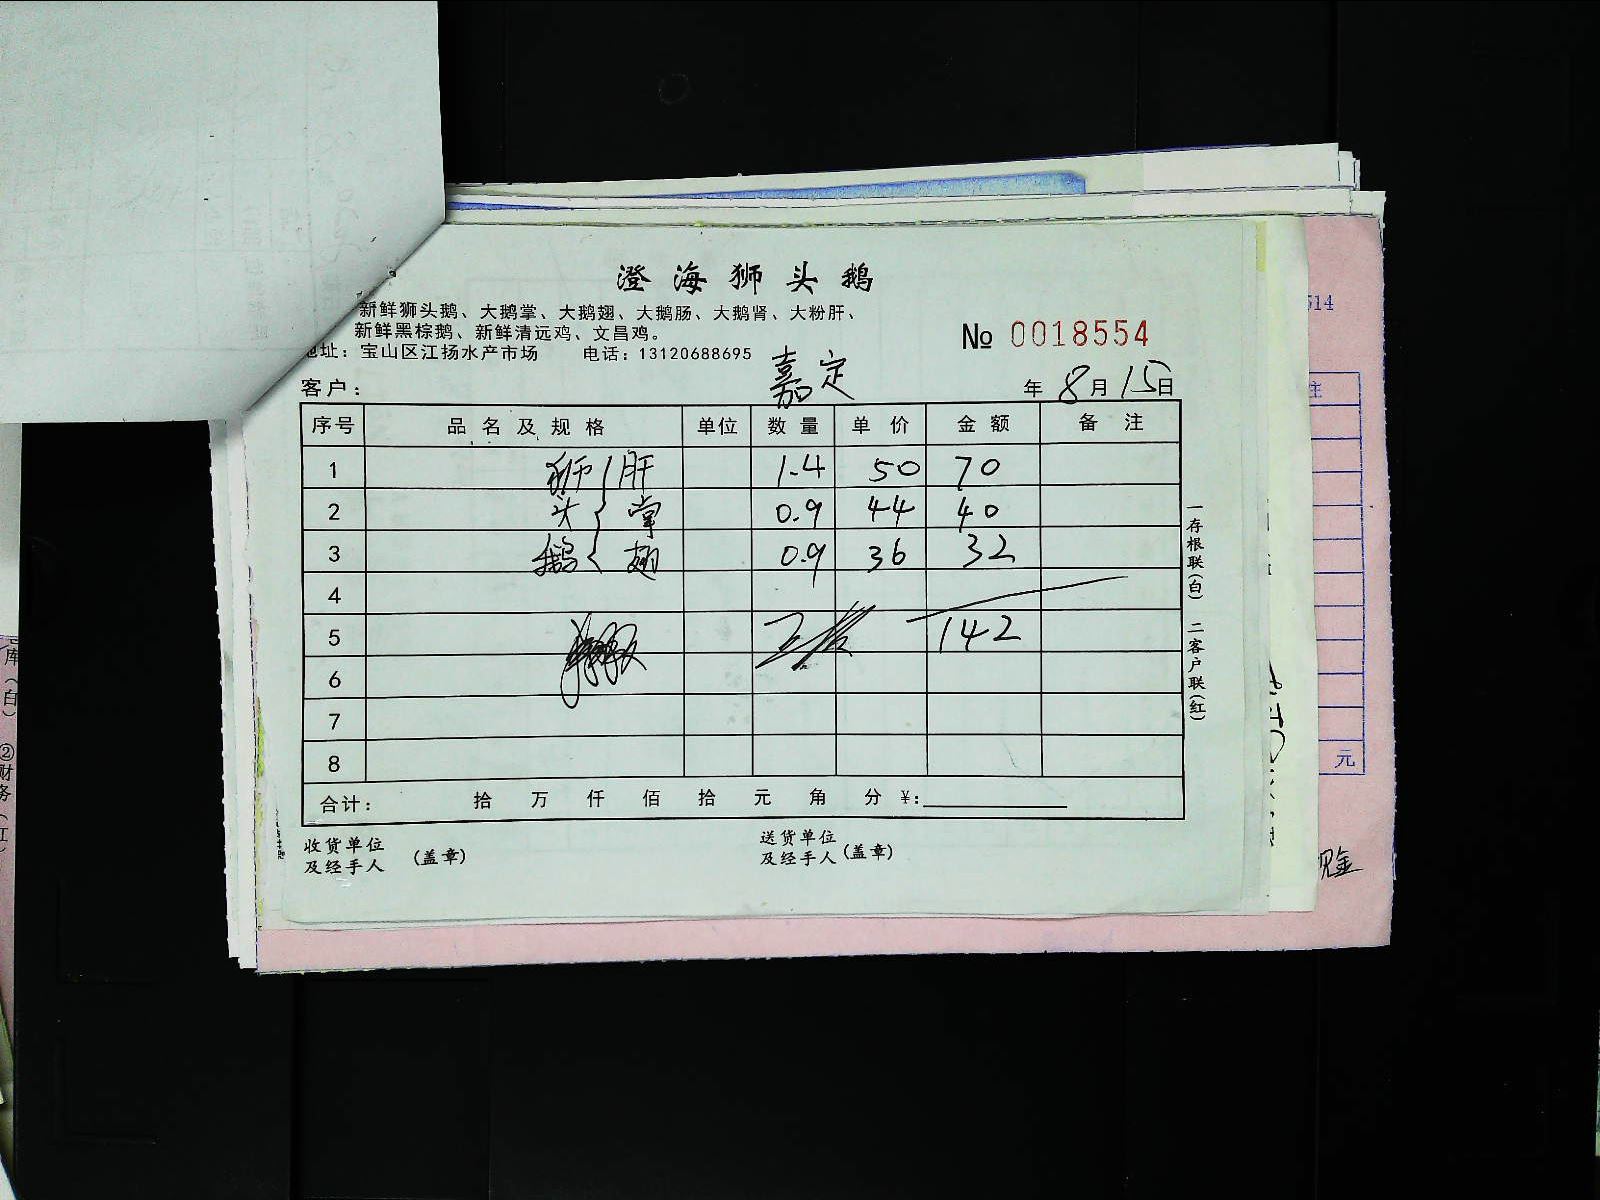 澄海狮头鹅
新鲜狮头鹅、大鹅掌、大鹅翅、大鹅肠、大鹅肾、大粉肝、
新鲜黑棕鹅、新鲜清远鸡、文昌鸡。
地址：宝山区江扬水产市场 电话：13120688695
№ 0018554
客户： 嘉定 年 8 月 15 日
序号 品名及规格 单位 数量 单价 金额 备注
1 狮 肝 1.4 50 70
2 头 掌 0.9 44 40
3 鹅 翅 0.9 36 32
4
5 142
6
7
8
合计： 拾 万 仟 佰 拾 元 角 分 ¥：
收货单位
及经手人 （盖章）
送货单位
及经手人（盖章）
一存根联（白） 二客户联（红）
514
注
元
现金
库（白） ②财务（红）